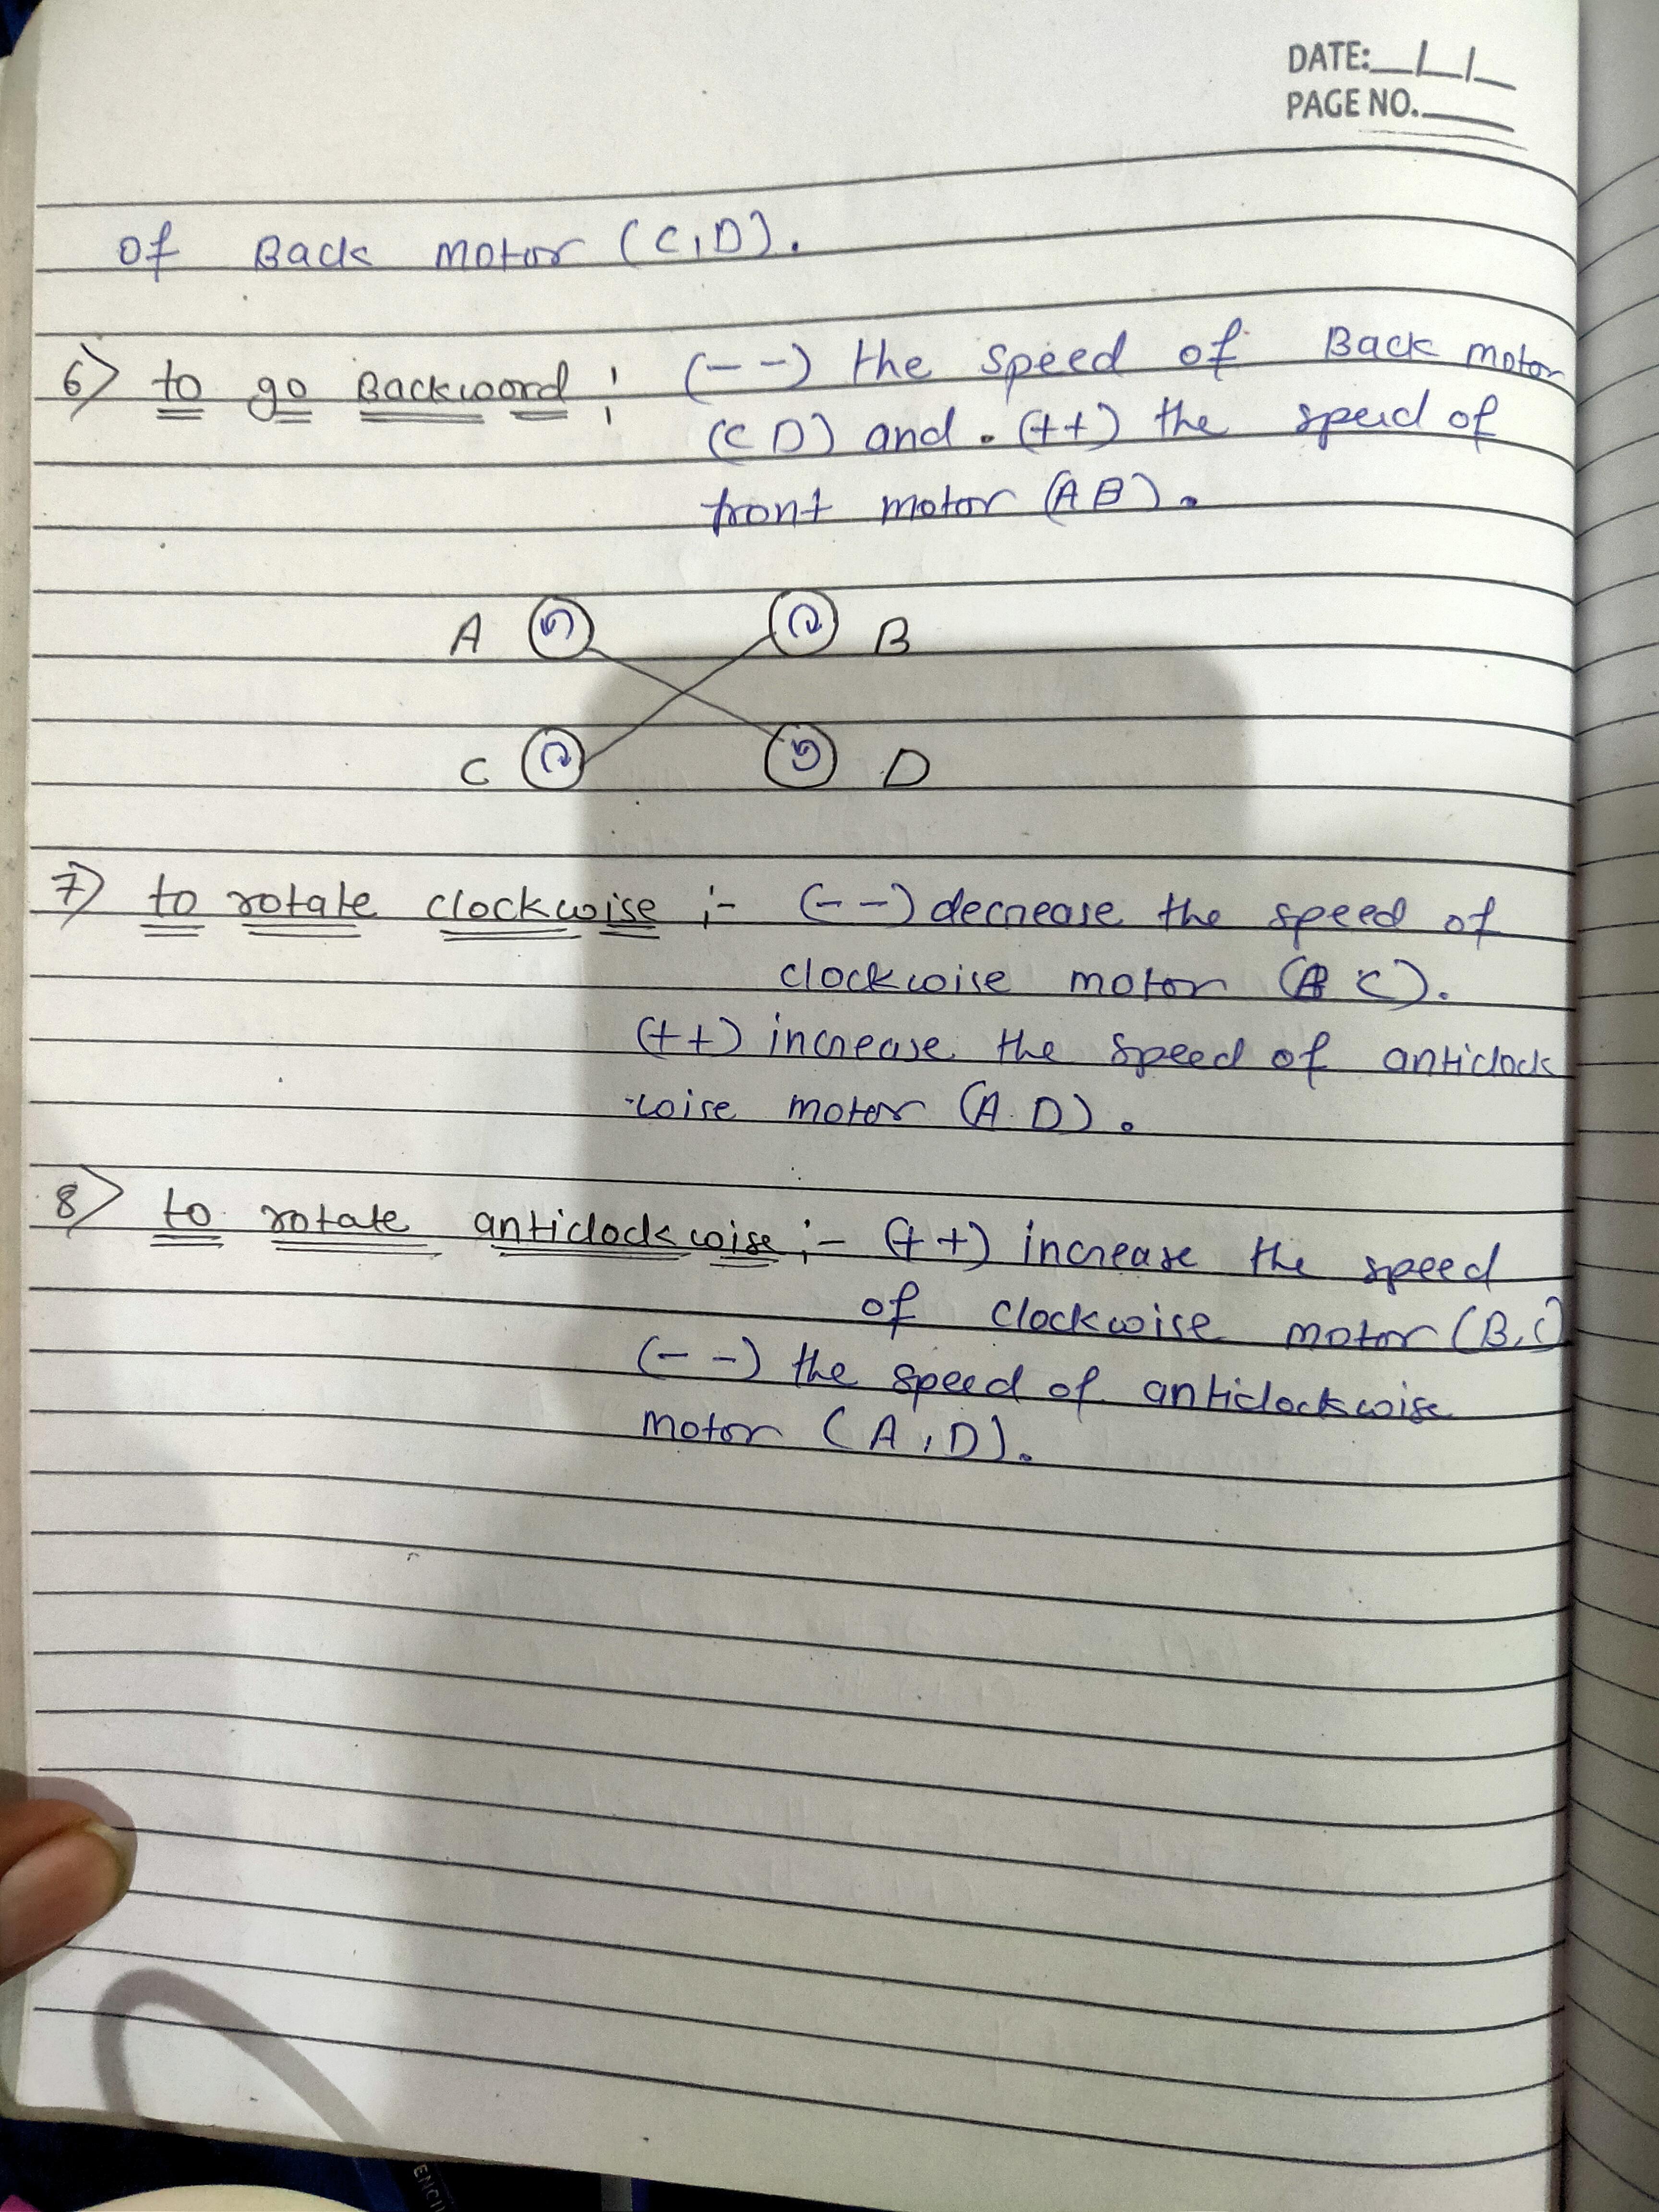 DATE: __/__/__
PAGE NO.____
of Back motor (C,D).
6> to go Backword : (--) the speed of Back motor
(C D) and . (++) the speed of
front motor (A B).
A B
C D
7> to rotate clockwise :- (--) decrease the speed of
clockwise motor (B C).
(++) increase the speed of anticlock
-wise motor (A.D).
8> to rotate anticlockwise :- (++) increase the speed
of clockwise motor (B,C)
(--) the speed of anticlockwise
motor (A,D).